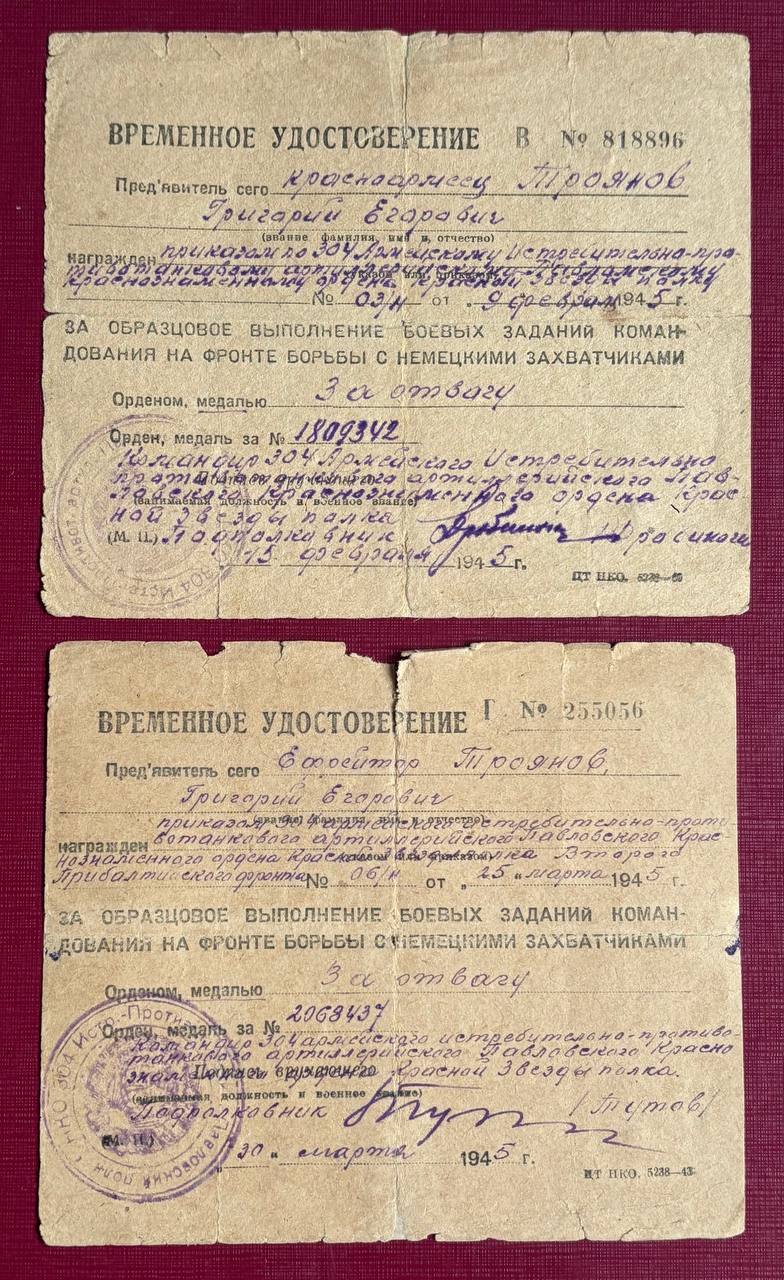 ВРЕМЕННОЕ УДОСТОВЕРЕНИЕ В № 818896
Пред'явитель сего красноармеец Троянов
Григорий Егорович
(звание фамилия, имя и отчество)
награжден приказом по 304 Армейскому Истребительно-про-
тивотанковому артиллерийскому Павловскому
Краснознаменному ордена Красной Звезды полку
№ 03/н от „9 февраля 1945 г.
ЗА ОБРАЗЦОВОЕ ВЫПОЛНЕНИЕ БОЕВЫХ ЗАДАНИЙ КОМАН-
ДОВАНИЯ НА ФРОНТЕ БОРЬБЫ С НЕМЕЦКИМИ ЗАХВАТЧИКАМИ
Орденом, медалью За отвагу
Орден, медаль за № 1809342
Командир 304 Армейского Истребительно
противотанкового артиллерийского Пав-
ловского Краснознаменного ордена Крас
ной Звезды полка
(занимаемая должность и военное звание)
(М. П.) Подполковник
15 февраля 1945 г.
ЦТ НКО. 5238—60
ВРЕМЕННОЕ УДОСТОВЕРЕНИЕ Г № 255056
Пред'явитель сего Ефрейтор Троянов,
Григорий Егорович
(звание фамилия, имя и отчество)
приказом 304 армейского истребительно-проти-
награжден вотанкового артиллерийского Павловского Крас-
нознаменного ордена Красной Звезды полка Второго
Прибалтийского фронта № 06/н от „25“ марта 1945 г.
ЗА ОБРАЗЦОВОЕ ВЫПОЛНЕНИЕ БОЕВЫХ ЗАДАНИЙ КОМАН-
ДОВАНИЯ НА ФРОНТЕ БОРЬБЫ С НЕМЕЦКИМИ ЗАХВАТЧИКАМИ
Орденом, медалью За отвагу
Орден, медаль за № 2068437
Командир 304 армейского истребительно-противо-
танкового артиллерийского Павловского Красно
знаменного ордена Красной Звезды полка.
Подпись вручающего
(занимаемая должность и военное звание)
Подполковник /Тутов/
(М. П.)
„30“ марта 1945 г.
ЦТ НКО. 5238—43